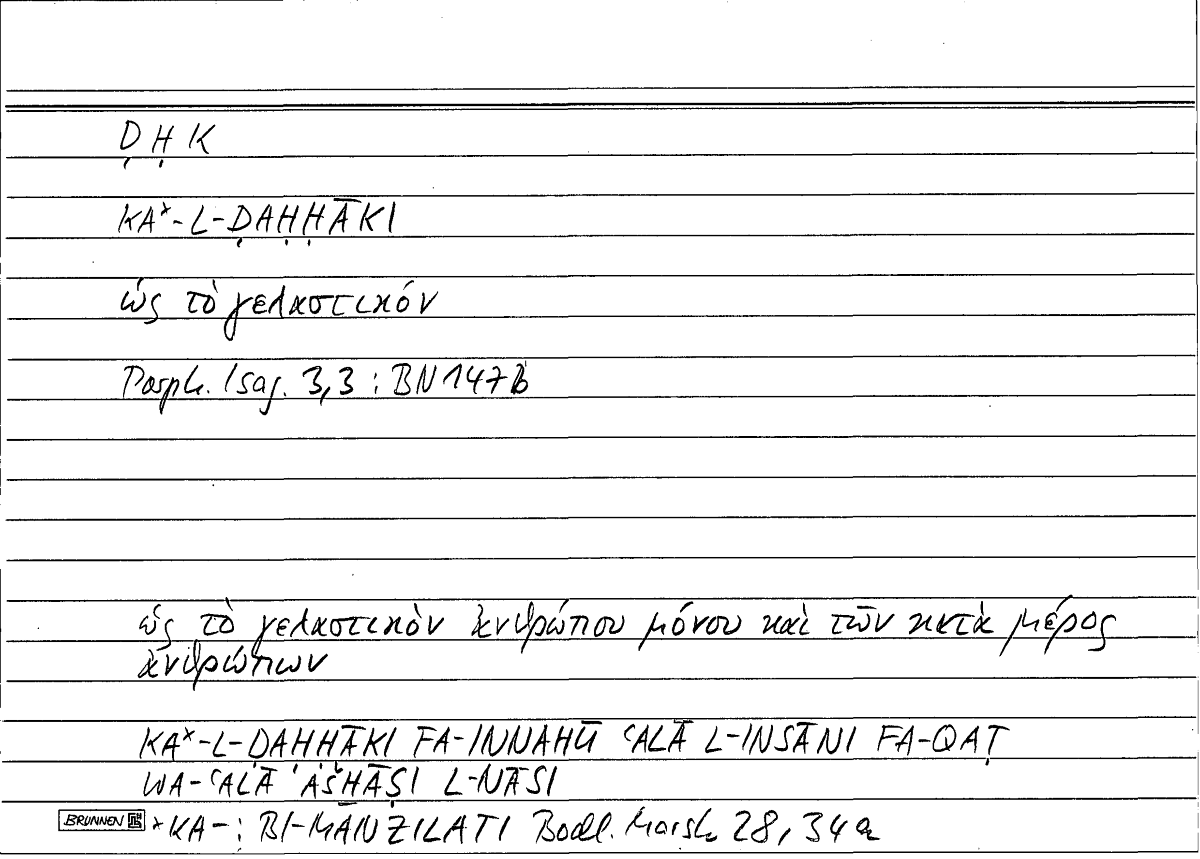 ḌḤK
KAˣ-L-ḌAḤḤĀKI
ὡς τὸ γελαστικόν
Porph. Isag. 3,3 : BN 147b
ὡς τὸ γελαστικὸν ἀνθρώπου μόνου καὶ τῶν κατὰ μέρος
ἀνθρώπων
KAˣ-L-ḌAḤḤĀKI FA-INNAHŪ ʿALĀ L-INSĀNI FA-QAṬ
WA-ʿALĀ ʾAŠḪĀṢI L-NĀSI
BRUNNEN ˣKA- : BI-MANZILATI Bodl. Marsh 28, 34a